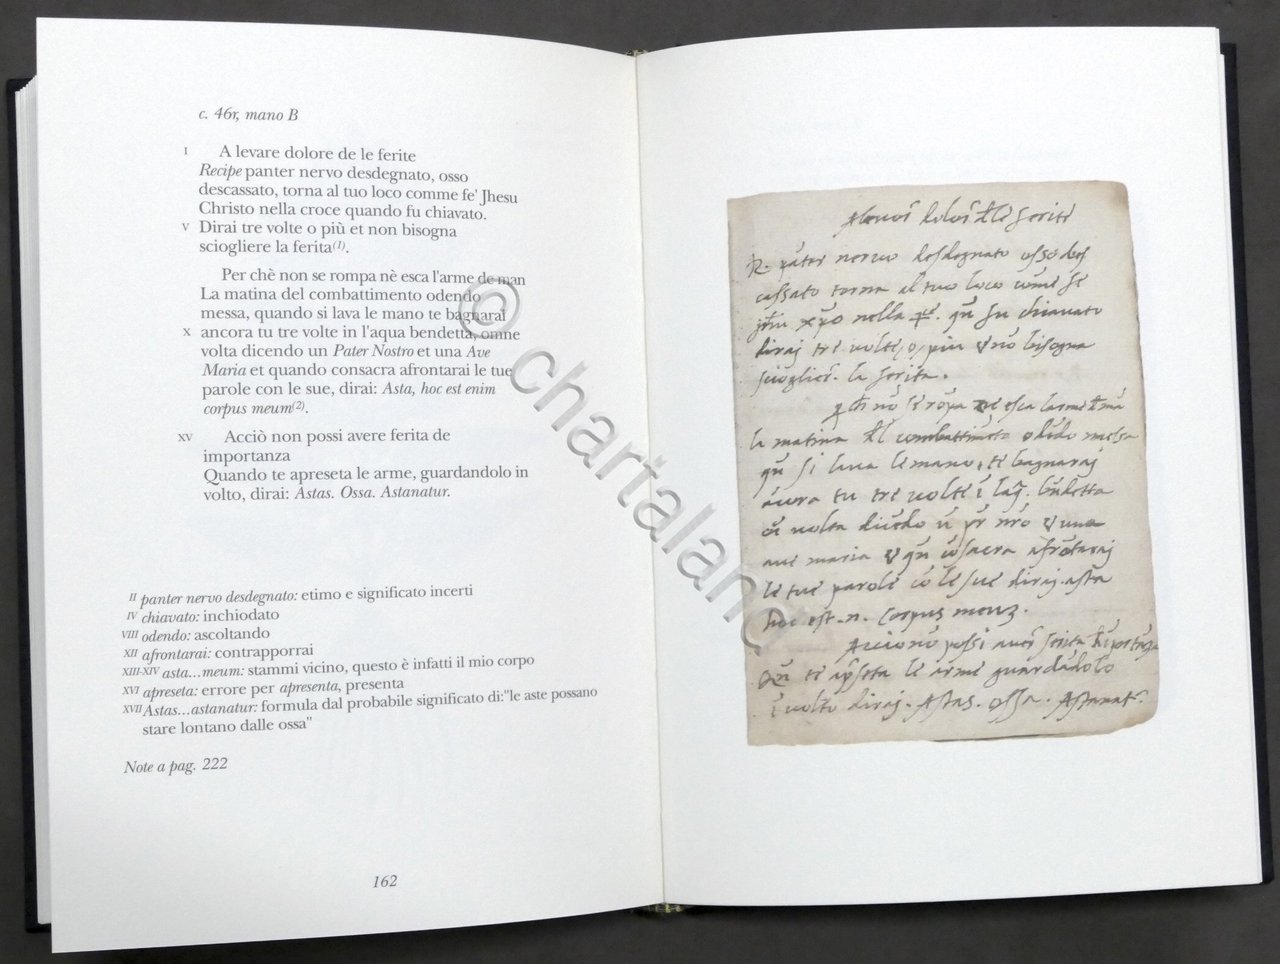 c. 46r, mano B
I A levare dolore de le ferite
Recipe panter nervo desdegnato, osso
descassato, torna al tuo loco comme fe' Jhesu
Christo nella croce quando fu chiavato.
V Dirai tre volte o più et non bisogna
sciogliere la ferita(1).
Per chè non se rompa nè esca l'arme de man
La matina del combattimento odendo
messa, quando si lava le mano te bagnarai
X ancora tu tre volte in l'aqua bendetta, omne
volta dicendo un Pater Nostro et una Ave
Maria et quando consacra afrontarai le tue
parole con le sue, dirai: Asta, hoc est enim
corpus meum(2).
XV Acciò non possi avere ferita de
importanza
Quando te apreseta le arme, guardandolo in
volto, dirai: Astas. Ossa. Astanatur.
II panter nervo desdegnato: etimo e significato incerti
IV chiavato: inchiodato
VIII odendo: ascoltando
XII afrontarai: contrapporrai
XIII-XIV asta...meum: stammi vicino, questo è infatti il mio corpo
XVI apreseta: errore per apresenta, presenta
XVII Astas...astanatur: formula dal probabile significato di:"le aste possano
stare lontano dalle ossa"
Note a pag. 222
162
© chartaland
nervo desdegnato osso des
cassato torna al tuo loco come fe
nella quando fu chiavato
dirai tre volte, o, piu bisogna
la ferita.
la matina del odendo messa
si lava le mano, te bagnarai
tu tre volte
volta
ave maria afrotarai
le tue parole co le sue dirai. asta
hoc est. n. corpus
possi ferita
te le arme guardadolo
volto dirai. Astas. ossa. Astanat.